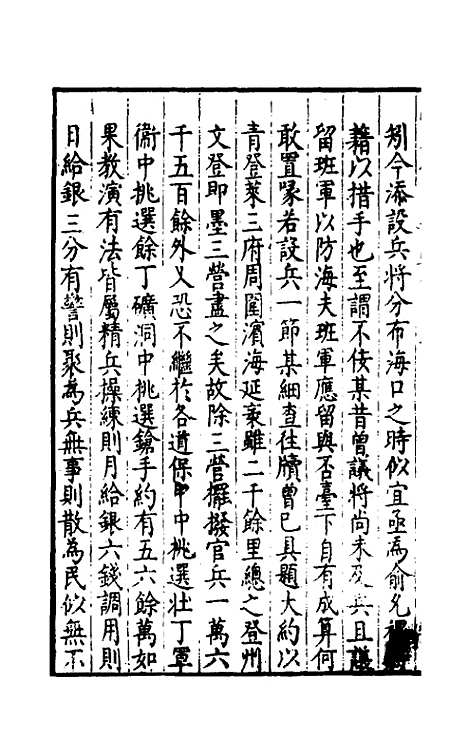 矧今添設兵將分布海口之時似宜亟為俞允
藉以措手也至謂不佞某昔曾議將尚未及兵且議
留班軍以防海夫班軍應留與否臺下自有成算何
敢置喙若設兵一節某細查往牘曾已具題大約以
青登萊三府周圍濱海延袤雖二千餘里總之登州
文登即墨三營盡之矣故除三營擺撥官兵一萬六
千五百餘外又恐不繼於各道保甲中挑選壯丁軍
衛中挑選餘丁礦洞中挑選鎗手約有五六餘萬如
果教演有法皆屬精兵操練則月給銀六錢調用則
日給銀三分有警則聚為兵無事則散為民似無不